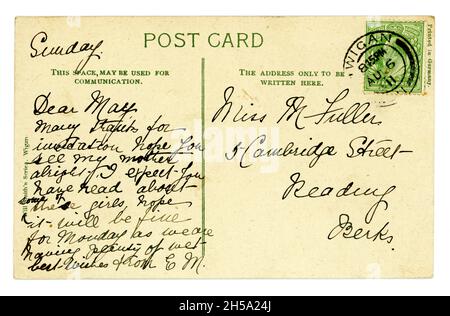 Sunday
POST CARD
THIS SPACE, MAY BE USED FOR
COMMUNICATION.
THE ADDRESS ONLY TO BE
WRITTEN HERE.
Dear May
Many thanks for
invitation hope you
see my mother
alright I expect you
have read about
some of
these girls, hope
it will be fine
for Monday as we are
having plenty of wet
best wishes from E M.
Miss M Fuller
5 Cambridge Street
Reading
Berks.
WIGAN
AU 6
11
Printed in Germany
Smith's Series, Wigan
alamy
Image ID: 2H5A24J
www.alamy.com